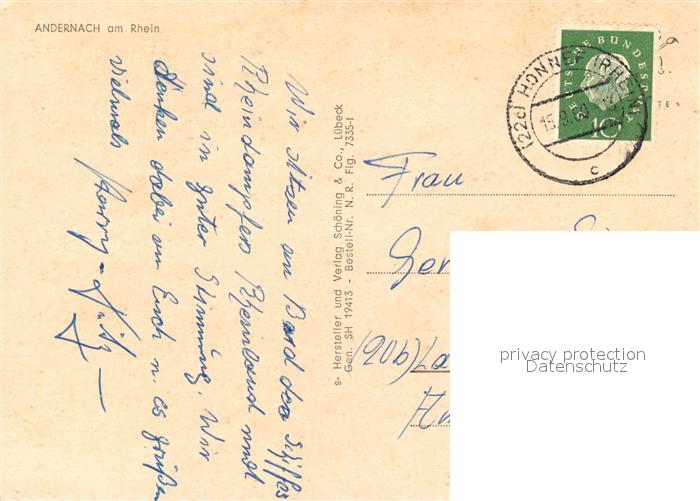 ANDERNACH am Rhein
Wir sitzen an Bord des Schiffes
Rheindampfers Rheinland und
sind in guter Stimmung. Wir
denken dabei an Euch u. es grüßen
vielmals Harry
s- Hersteller und Verlag Schöning & Co., Lübeck
Gen. SH 19413 - Bestell-Nr. N. R. Flg. 7355-f
DEUTSCHE BUNDESPOST
10
(22c) HONNEF (RHEIN)
c
Frau
(20b) La
privacy protection
Datenschutz